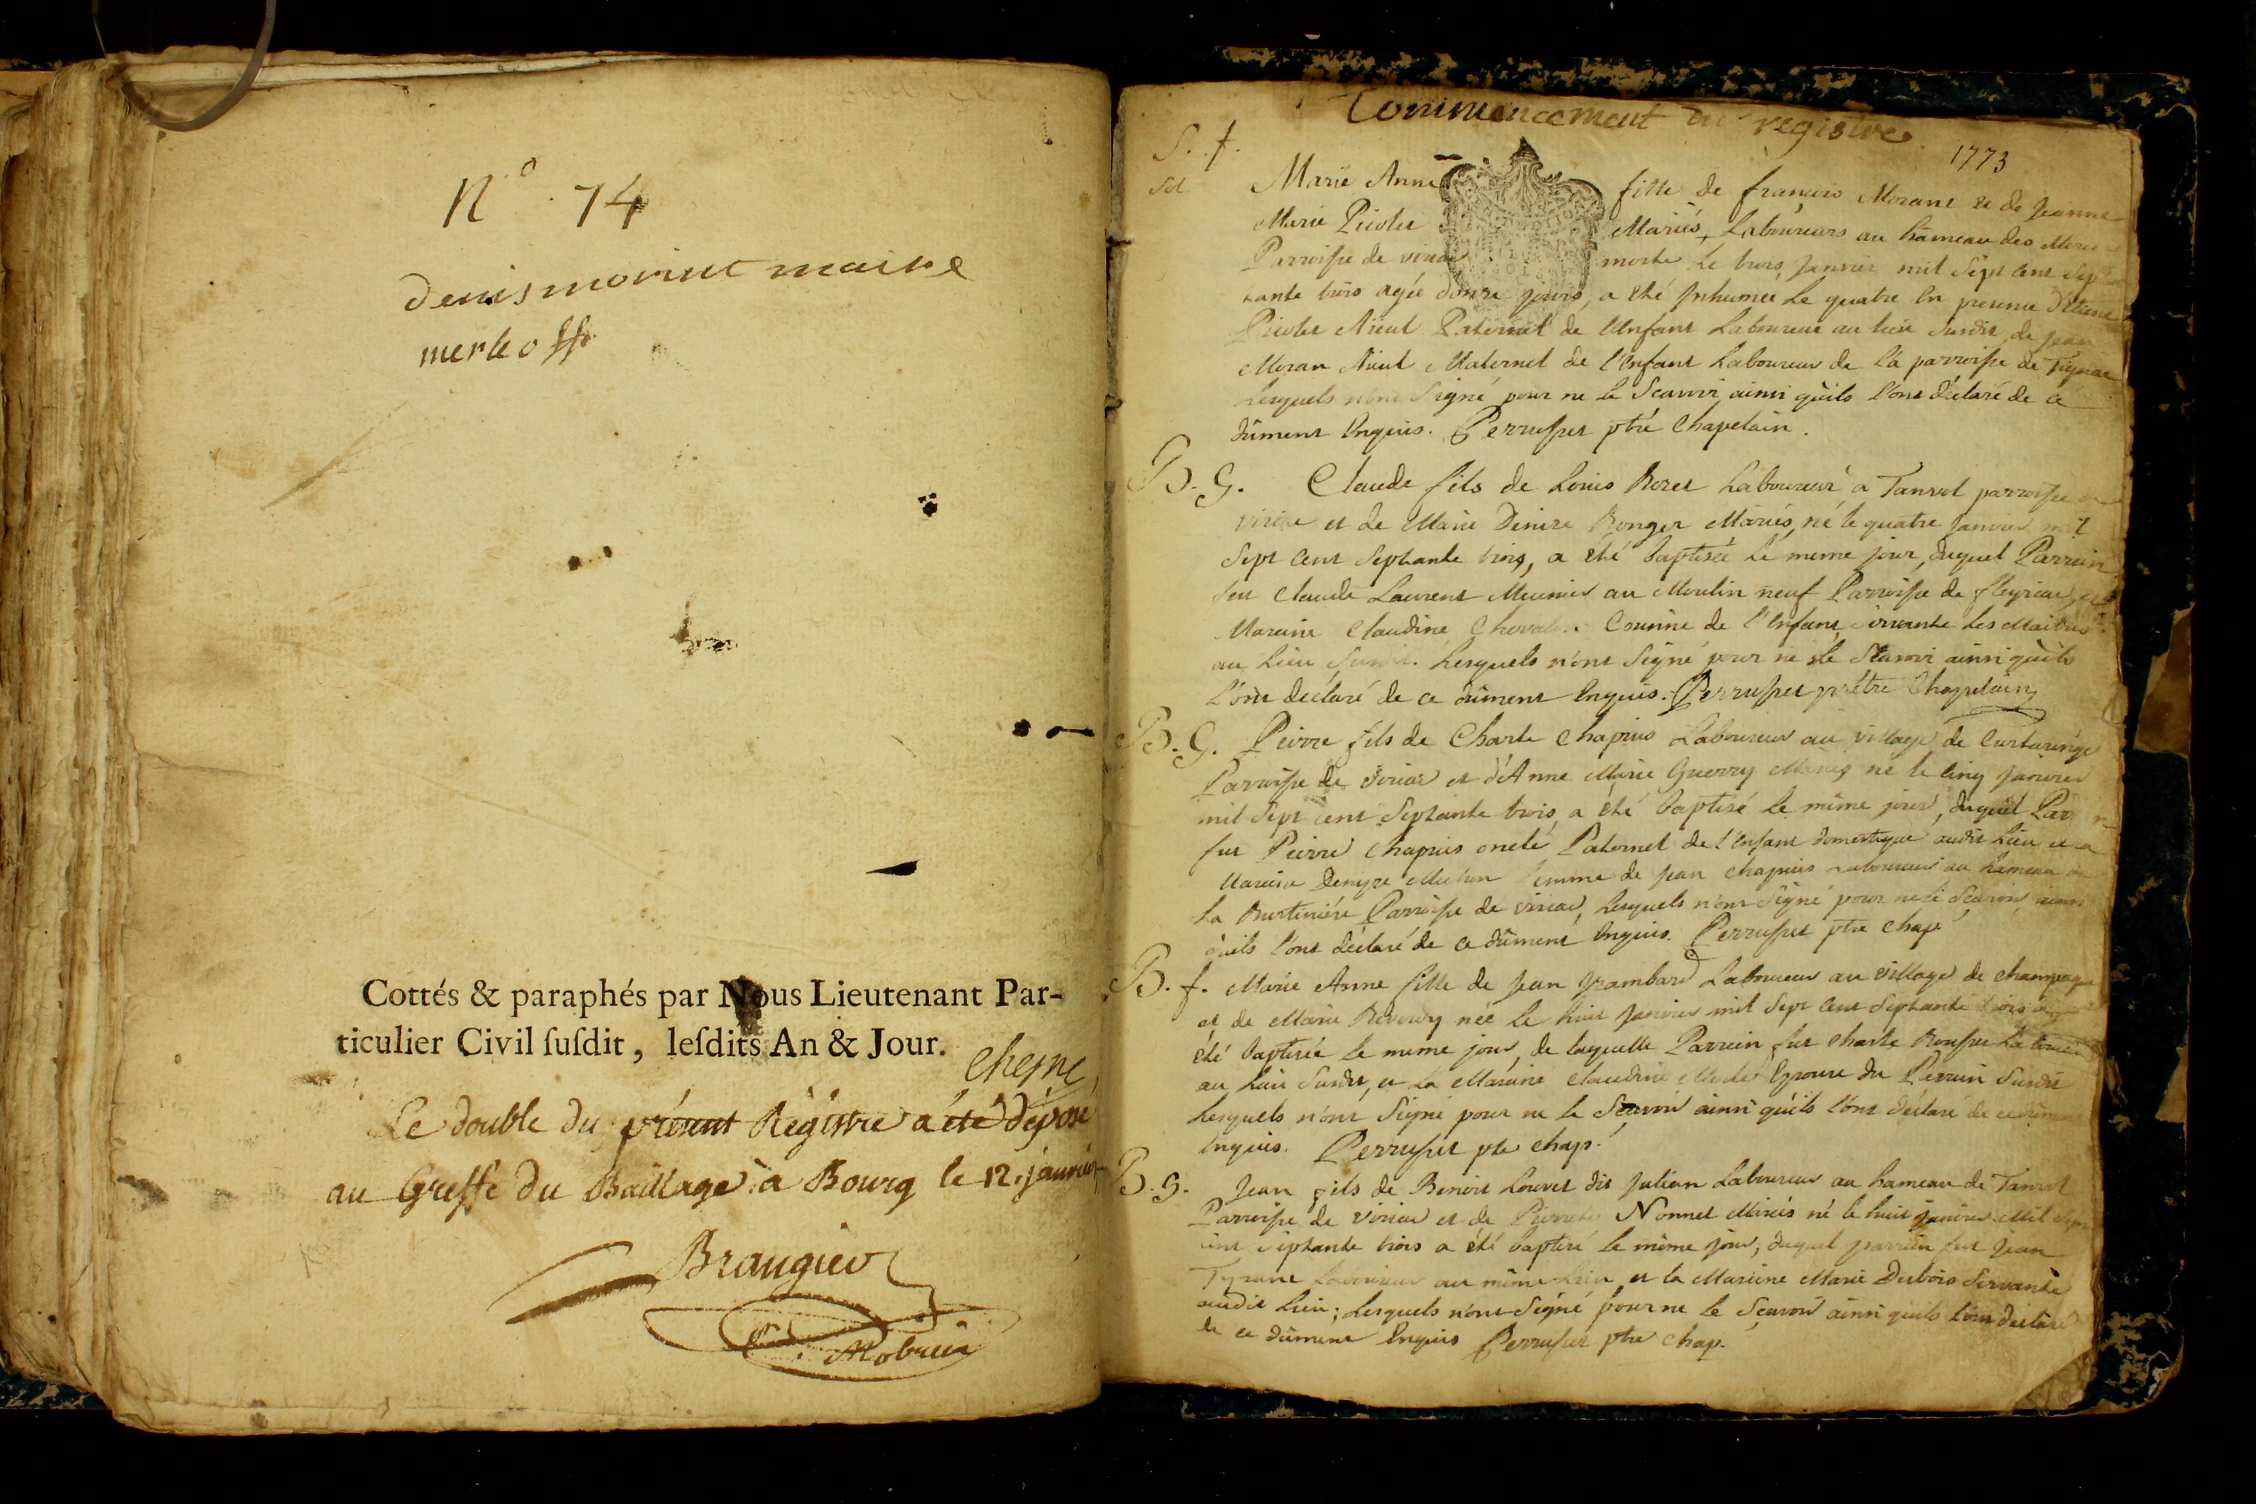 N° 74
denis morint maire
Cottés & paraphés par Nous Lieutenant Par-
ticulier Civil ſuſdit, leſdits An & Jour.
Chesne
Le double du présent Régistre a été déposé
au Greffe du Baillage à Bourg le 12. janvier
Braugier
Commencement du registre
1773
S. f.
Marie Anne fille de françois Morant et de Jeanne
Marie Picolet Mariés, Laboureurs au hameau des
Parroisse de viriat morte le trois Janvier mil Sept cent Sep
tante trois agée douze jours, a été Inhumée Le quatre En presence d'Etienne
Picolet Aieul Paternel de l'Enfant Laboureur au lieu Susdit, de Jean
Moran Aieul Maternel de l'Enfant Laboureur de la parroisse de
Lesquels n'ont Signé pour ne le Scavoir, ainsi qu'ils l'ont déclaré de ce
dûment Enquis. Perrusset ptre Chapelain.
B. G. Claude fils de Louis Boret Laboureur a Tanvol parroisse
viriat et de Marie Denize Ronger Mariés, né le quatre Janvier mil
Sept Cent Septante trois, a été baptisée le meme jour, duquel Parrein
fut Claude Laurent Meunier au Moulin neuf Parroisse de fleyriat,
Mareine Claudine Cousine de l'Enfant, Servante Les Maitres
au Lieu Susdit. Lesquels n'ont Signé pour ne le Scavoir ainsi qu'ils
l'ont declaré de ce dûment Enquis. Perrusset prêtre Chapelain
B. G. Pierre fils de Charle Chapuis Laboureur au village de Curtaringe
Parroisse de Viriat et d'Anne Marie Guerry Mariés né le Cinq Janvier
mil Sept cent Septante trois, a été baptisé le même jour, duquel Parrein
fut Pierre Chapuis oncle Paternel de l'Enfant domestique audit Lieu et
Mareine Denyze femme de Jean Chapuis Laboureur au hameau de
La Parroisse de viriat, Lesquels n'ont Signé pour ne le Scavoir ainsi
qu'ils l'ont déclaré de ce dûment Enquis. Perrusset ptre Chap
B. f. Marie Anne fille de Jean Laboureur au village de Champagne
et de Marie née Le huit Janvier mil Sept Cent Septante trois a
été baptisée le meme jour, de laquelle Parrein fut Charle Laboureur
au Lieu Susdit, et La Mareine Claudine Epouse du Perrein Susdit
Lesquels n'ont Signé pour ne le Scavoir ainsi qu'ils l'ont déclaré de ce dûment
Enquis. Perrusset ptre Chap.
B. G. Jean fils de Benoit Louvet dit Julian Laboureur au hameau de Tanvol
Parroisse de viriat et de Pierrette Nonnet Mariés né le huit Janvier Mil Sept
cent Septante trois a été baptisé le même jour; duquel parrein fut Jean
Laboureur au même Lieu et la Mareine Marie Dubois Servante
audit Lieu; Lesquels n'ont Signé pour ne le Scavoir ainsi qu'ils l'ont déclaré
de ce dûment Enquis Perrusset ptre Chap.